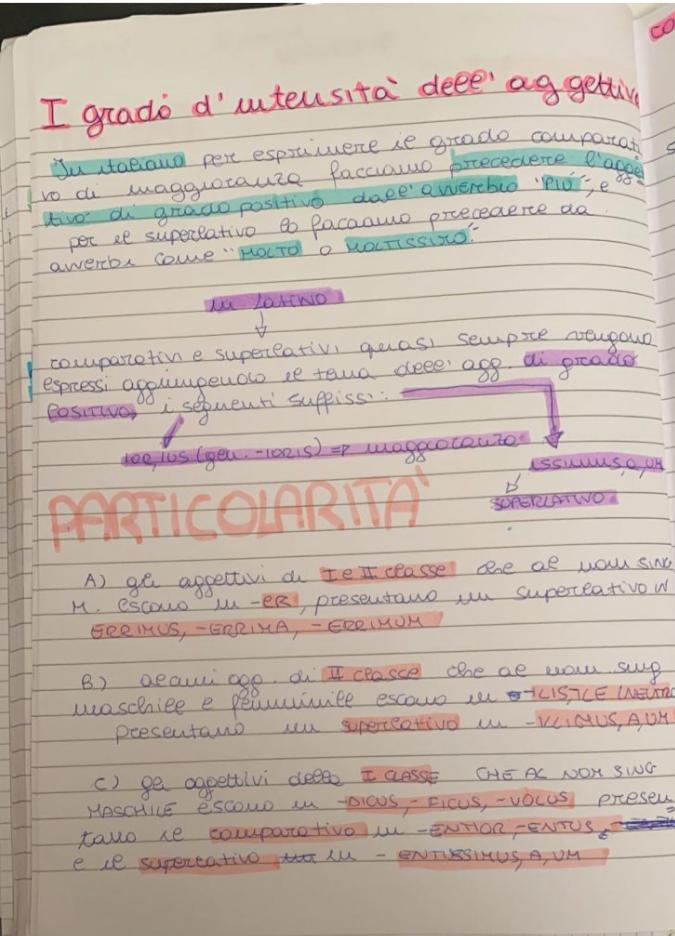 CO
I grado d'intensità dell'aggettivo
In italiano per esprimere il grado comparati
vo di maggioranza facciamo precedere l'agge
tivo di grado positivo dall'avverbio "PIÙ", e
per il superlativo lo facciamo precedere da
avverbi come "MOLTO o MOLTISSIMO".
in LATINO
comparativi e superlativi quasi sempre vengono
espressi aggiungendo il tema dell' agg. di grado
POSITIVO, i seguenti suffissi:
ior, ius (gen. -IORIS) => maggioranza
ISSIMUS, A, UM
SUPERLATIVO
PARTICOLARITA'
A) gli aggettivi di I e II classe che al nom SING
M. escono in -ER, presentano un superlativo IN
ERRIMUS, -ERRIMA, -ERRIMUM
B) alcuni agg. di II classe che al nom sing
maschile e femminile escono in -ILIS, ILE (NEUTRO
presentano un superlativo in -ILLIMUS, A, UM
C) gli aggettivi della I CLASSE CHE AL NOM SING
MASCHILE escono in -DICUS, -FICUS, -VOLUS presen
tano il comparativo in -ENTIOR, -ENTUS,
e il superlativo in - ENTISSIMUS, A, UM